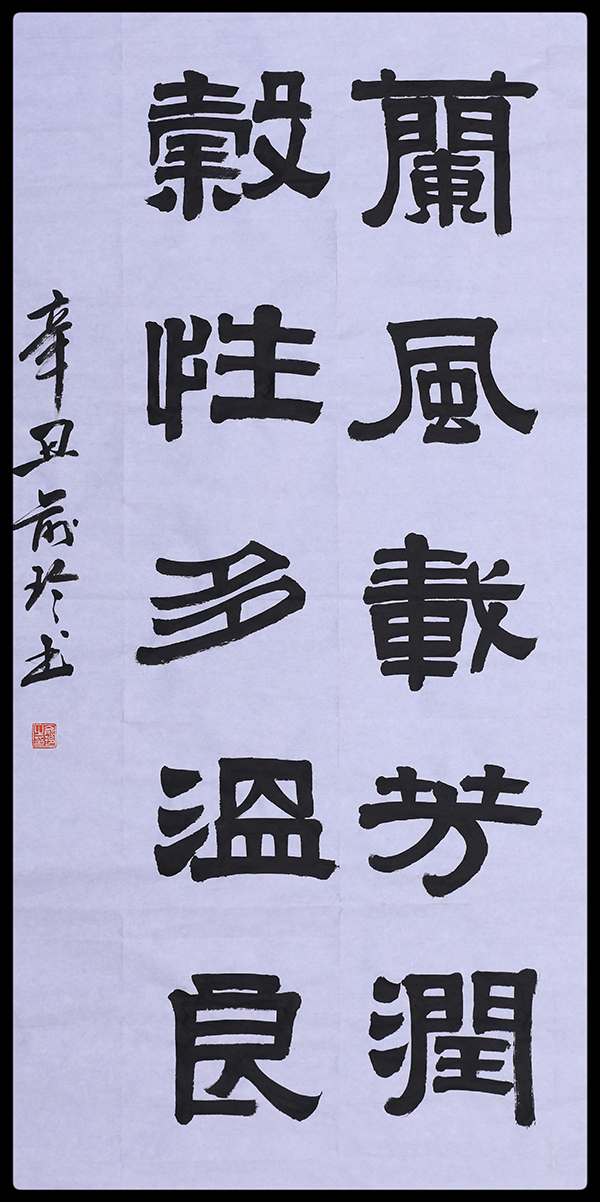 蘭風載芳潤
穀性多溫良
辛丑前玲书